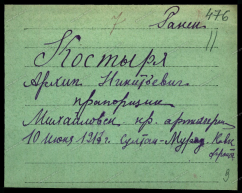 7 Ранен 476
11
Костыря
Архип Никитьевич
прапорщик
Михайловск. кр. артилерии
10 июня 1917 г. Султан-Мурад. Кавк.
фронт